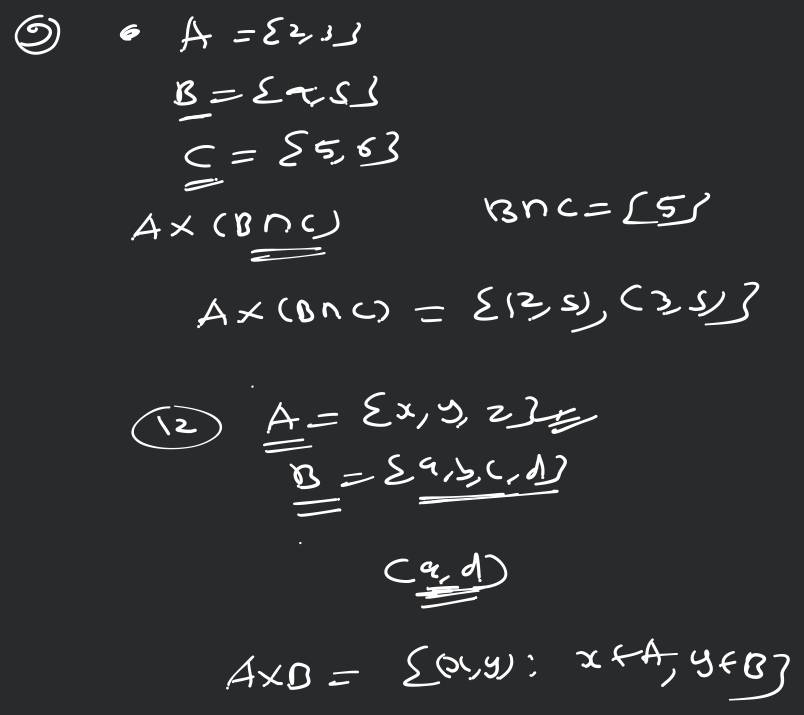 ② • A = {2, 3}
B = {4, 5}
C = {5, 6}
A × (B ∩ C) B ∩ C = {5}
A × (B ∩ C) = {(2, 5), (3, 5)}
⑫ A = {x, y, z}
B = {a, b, c, d}
(a, d)
A×B = {(x, y) : x ∈ A, y ∈ B}